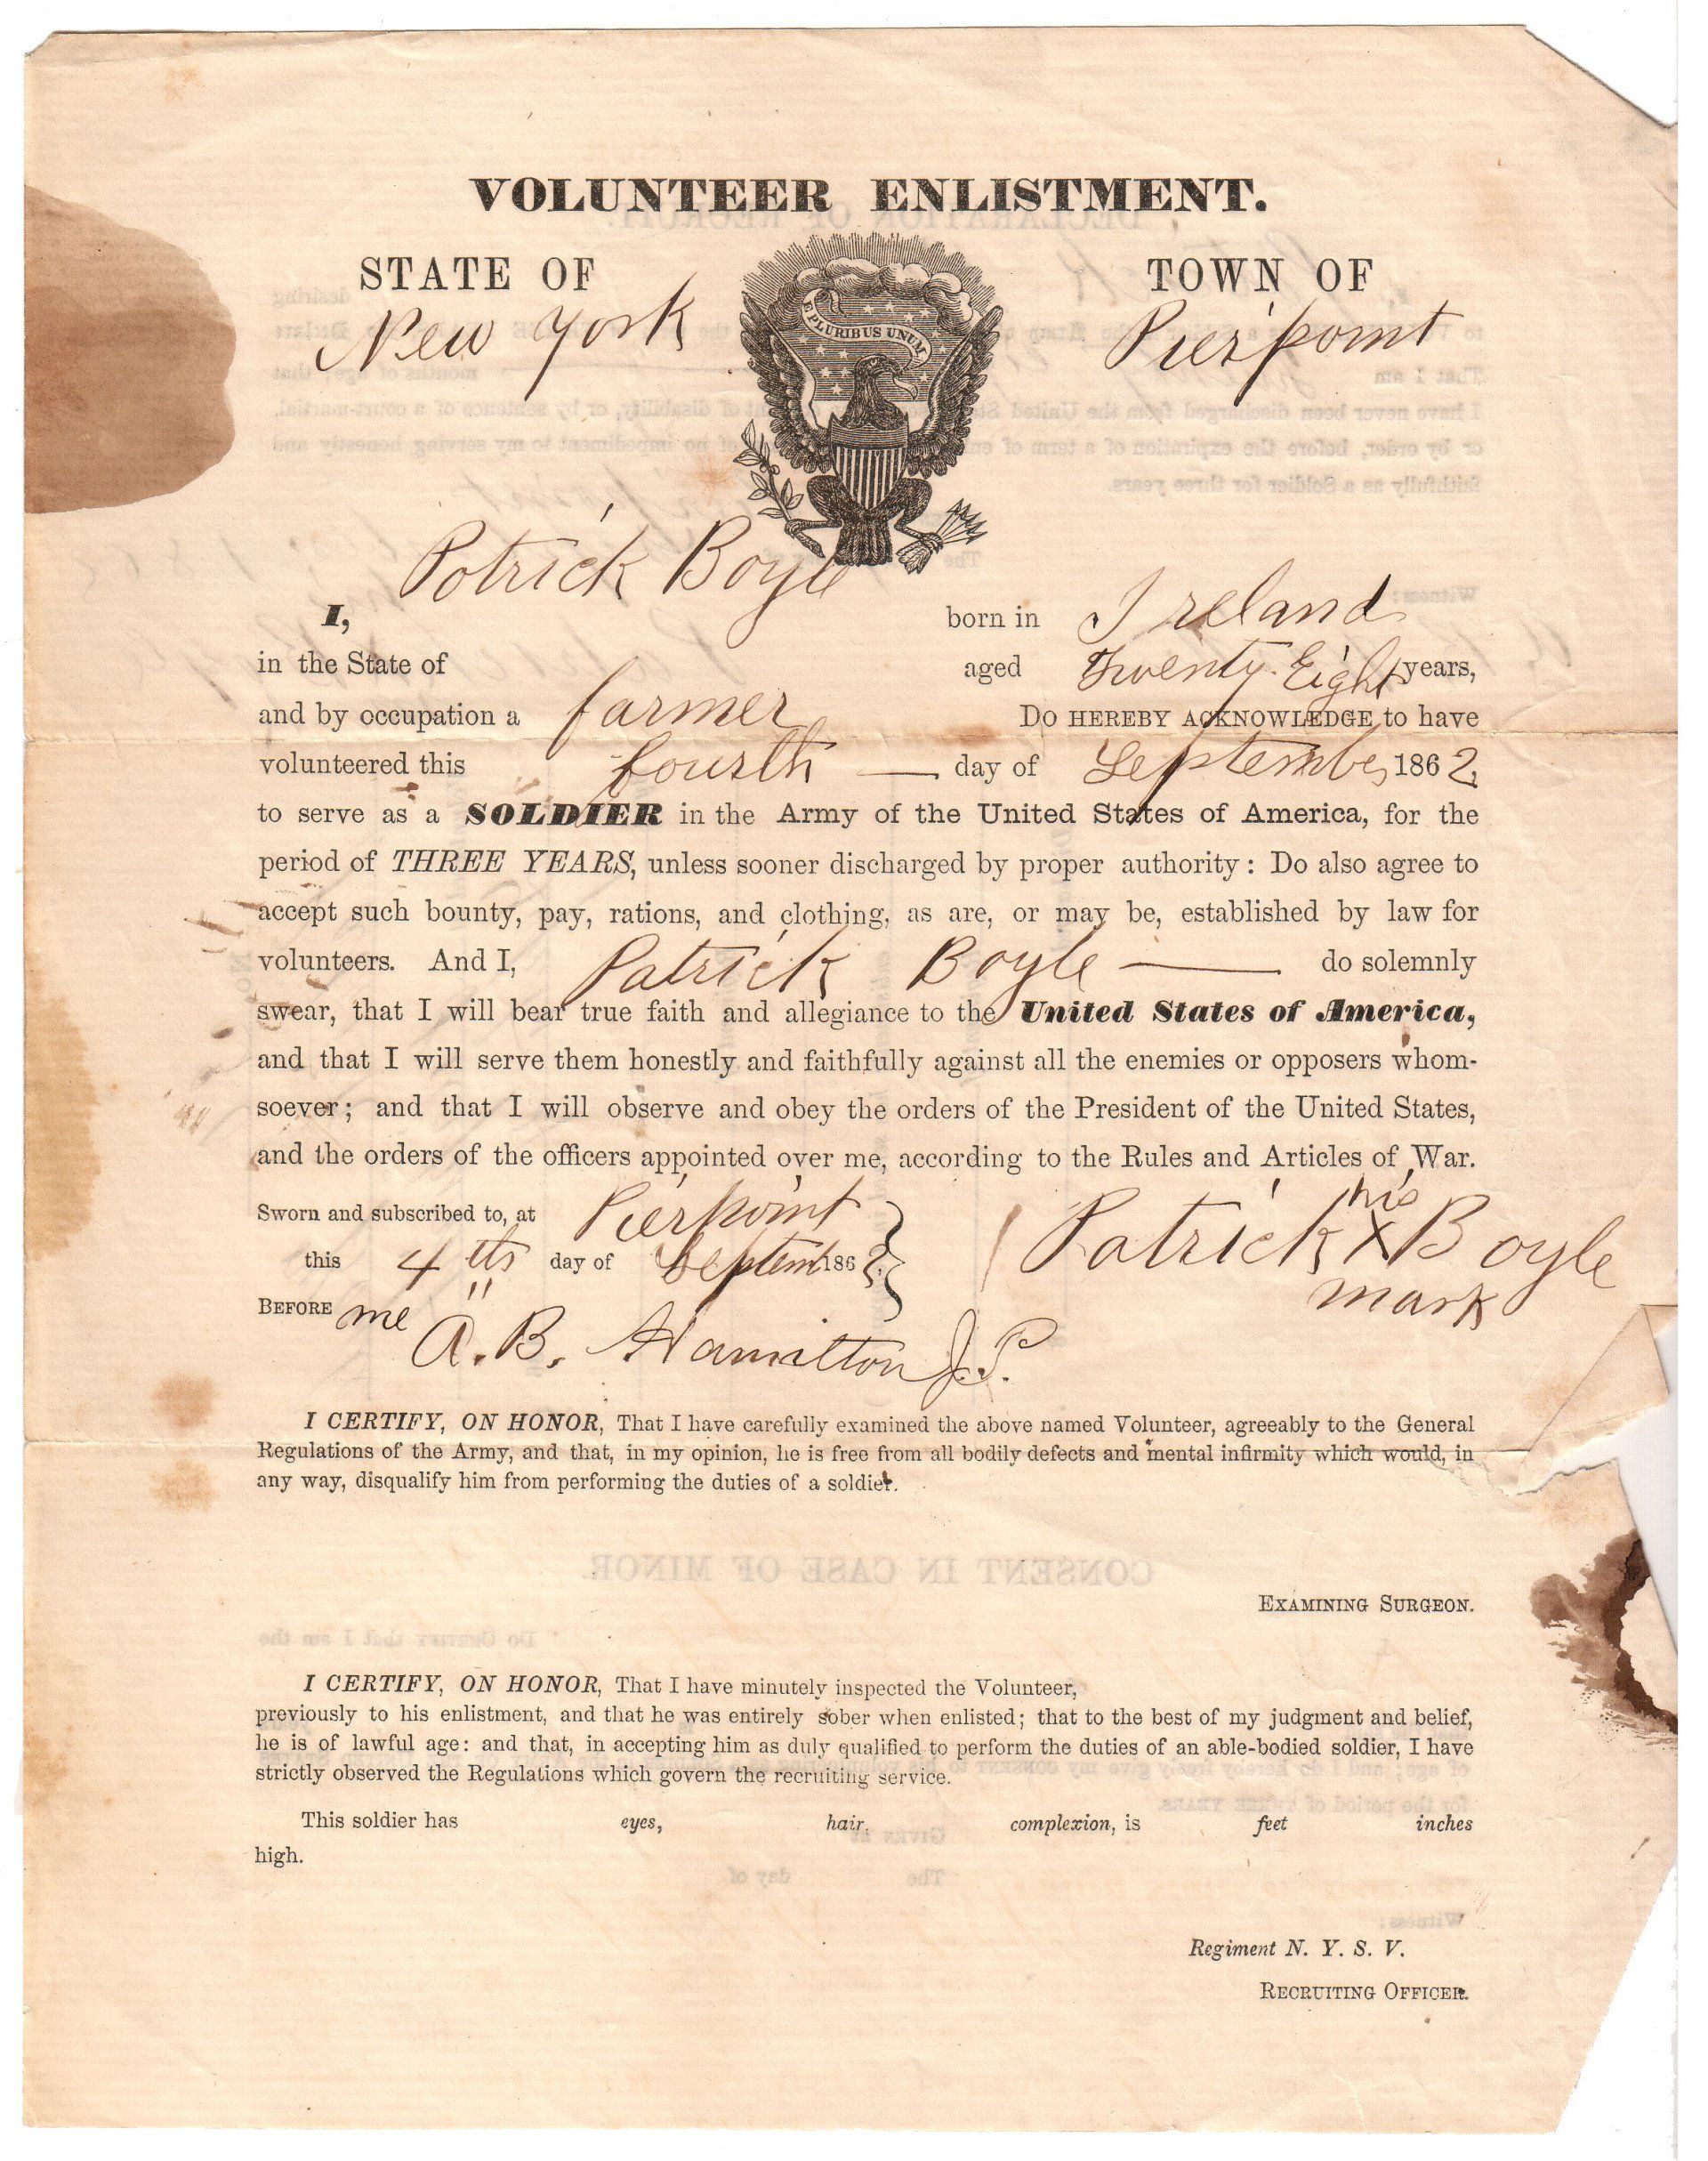 VOLUNTEER ENLISTMENT.
STATE OF TOWN OF
New York Pierpoint
E PLURIBUS UNUM
Patrick Boyle
I, born in Ireland
in the State of aged Twenty Eight years,
and by occupation a farmer DO HEREBY ACKNOWLEDGE to have
volunteered this fourth — day of September 1862,
to serve as a SOLDIER in the Army of the United States of America, for the
period of THREE YEARS, unless sooner discharged by proper authority: Do also agree to
accept such bounty, pay, rations, and clothing, as are, or may be, established by law for
volunteers. And I, Patrick Boyle — do solemnly
swear, that I will bear true faith and allegiance to the United States of America,
and that I will serve them honestly and faithfully against all the enemies or opposers whom-
soever; and that I will observe and obey the orders of the President of the United States,
and the orders of the officers appointed over me, according to the Rules and Articles of War.
Sworn and subscribed to, at Pierpoint
this 4th day of Septem 1862
his
Patrick X Boyle
mark
BEFORE me A. B. Hamilton J.P.
I CERTIFY, ON HONOR, That I have carefully examined the above named Volunteer, agreeably to the General
Regulations of the Army, and that, in my opinion, he is free from all bodily defects and mental infirmity which would, in
any way, disqualify him from performing the duties of a soldier.
EXAMINING SURGEON.
I CERTIFY, ON HONOR, That I have minutely inspected the Volunteer,
previously to his enlistment, and that he was entirely sober when enlisted; that to the best of my judgment and belief,
he is of lawful age: and that, in accepting him as duly qualified to perform the duties of an able-bodied soldier, I have
strictly observed the Regulations which govern the recruiting service.
This soldier has eyes, hair, complexion, is feet inches
high.
Regiment N. Y. S. V.
RECRUITING OFFICER.